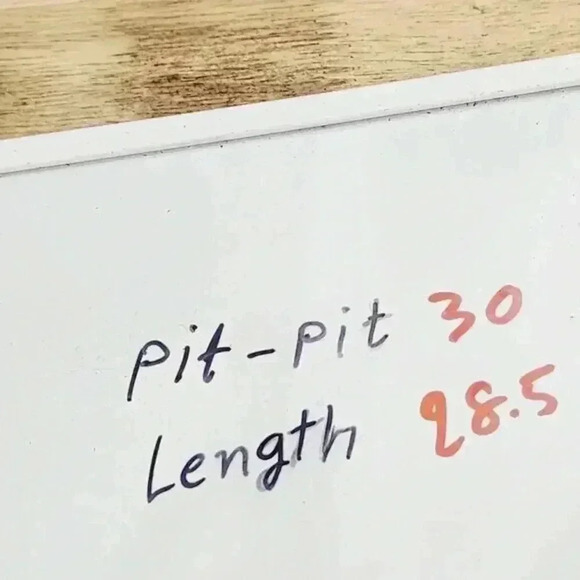 pit-pit 30
Length 28.5